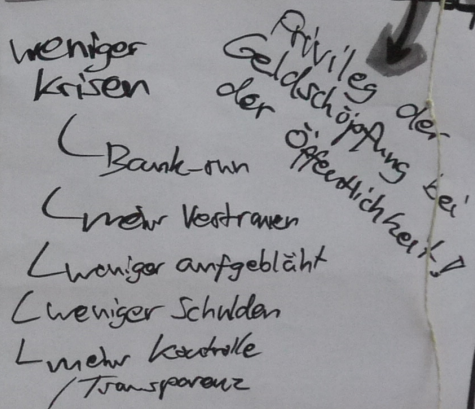 weniger
Krisen
Bank-run
mehr Vertrauen
weniger aufgebläht
weniger Schulden
mehr Kontrolle
/Transparenz
Privileg der
Geldschöpfung bei
der Öffentlichkeit!